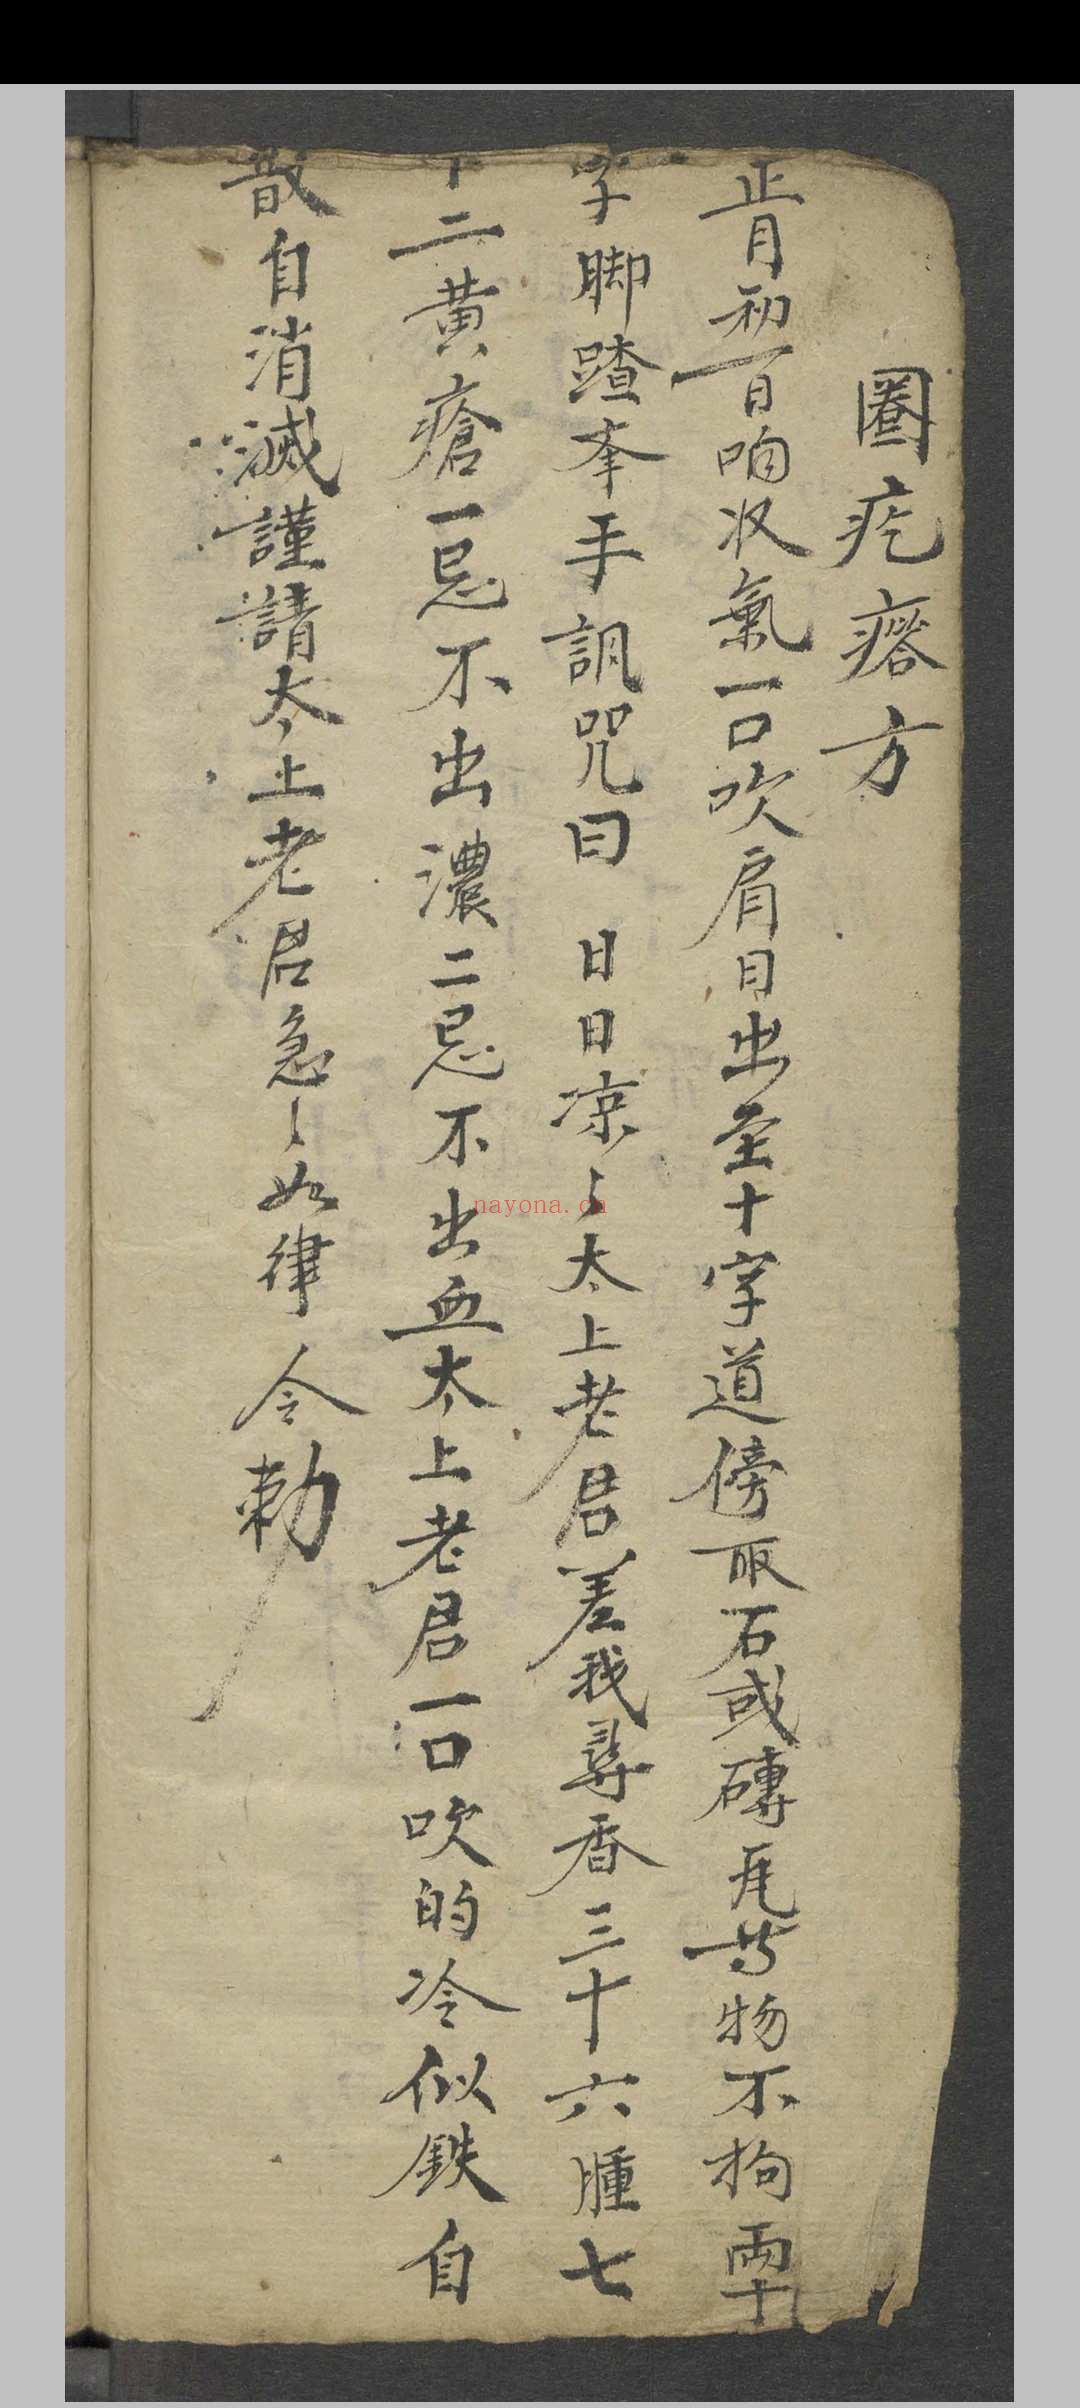 圈疙瘩方
正月初一百日向收氣一口吹肩目出至十字道傍取石或磚瓦等物不拘要十
字脚踏奉手諷咒曰 日日凉〻太上老君差我尋香三十六腫七
十二黄瘡一忌不出濃二忌不出血太上老君一口吹的冷似鉄自
散自消滅謹請太上老君急〻如律令勅
nayona.cn